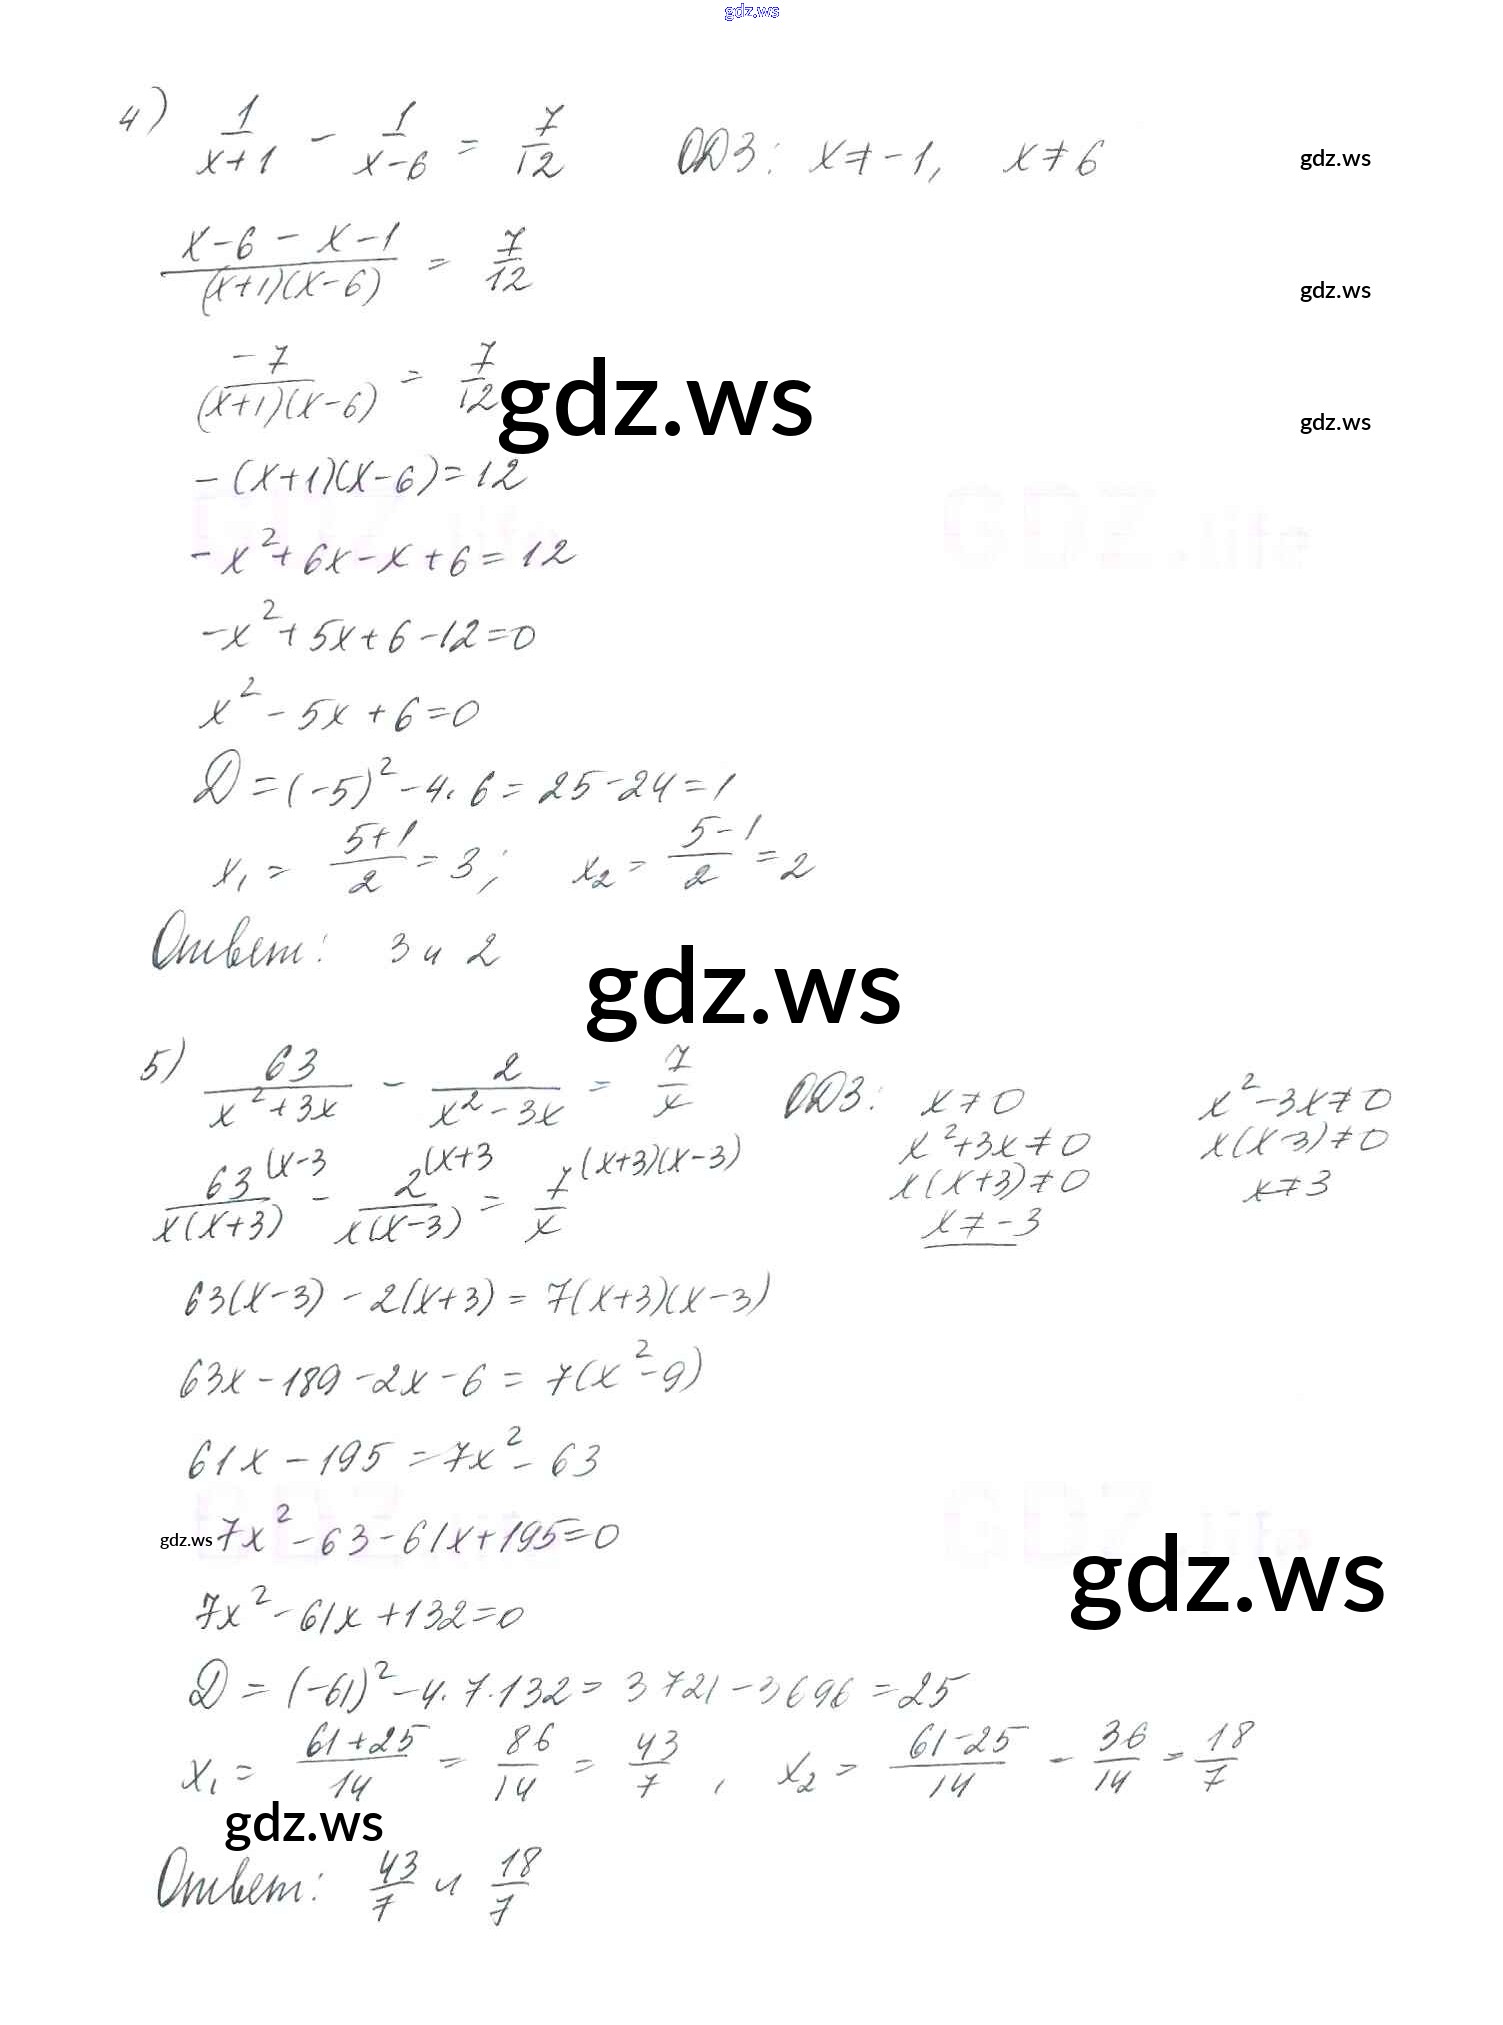 gdz.ws
4) 1/(x+1) - 1/(x-6) = 7/12   ОДЗ: x≠-1, x≠6
gdz.ws
(x-6-x-1)/((x+1)(x-6)) = 7/12
gdz.ws
-7/((x+1)(x-6)) = 7/12
gdz.ws
gdz.ws
-(x+1)(x-6)=12
GDZ.life GDZ.life
-x²+6x-x+6=12
-x²+5x+6-12=0
x²-5x+6=0
Д=(-5)²-4·6=25-24=1
x₁ = (5+1)/2 = 3; x₂ = (5-1)/2 = 2
Ответ: 3 и 2
gdz.ws
5) 63/(x²+3x) - 2/(x²-3x) = 7/x   ОДЗ: x≠0   x²-3x≠0
x²+3x≠0   x(x-3)≠0
63^(x-3/(x(x+3)) - 2^(x+3/(x(x-3)) = 7^(x+3)(x-3)/x   x(x+3)≠0   x≠3
x≠-3
63(x-3)-2(x+3)=7(x+3)(x-3)
63x-189-2x-6=7(x²-9)
61x-195=7x²-63
GDZ.life GDZ.life
gdz.ws 7x²-63-61x+195=0
gdz.ws
7x²-61x+132=0
Д=(-61)²-4·7·132=3721-3696=25
x₁ = (61+25)/14 = 86/14 = 43/7, x₂ = (61-25)/14 - 36/14 = 18/7
gdz.ws
Ответ: 43/7 и 18/7